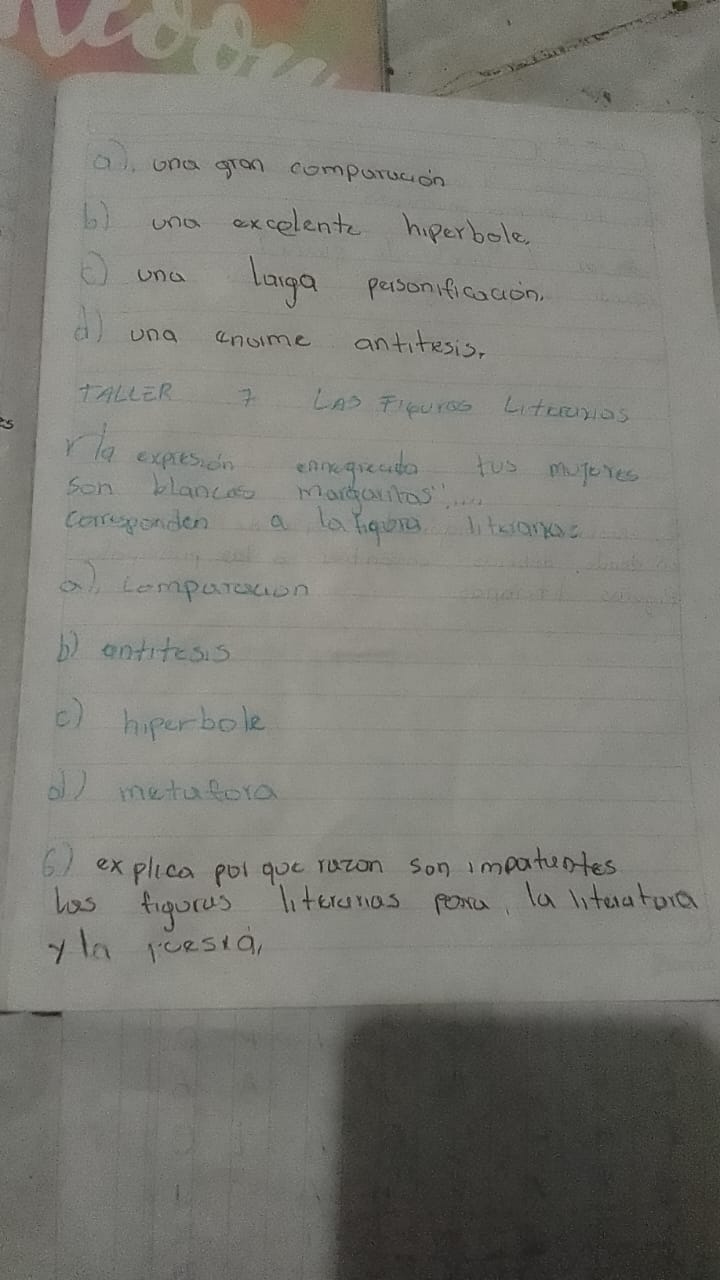 a). una gran comparación
b) una excelente hiperbole.
c) una larga personificación.
d) una enorme antitesis.
TALLER 7 LAS Figuras Literarias
la expresión ennegrecida tus mujeres
son blancas margaritas"....
corresponden a la figura literarias:
a). comparacion
b) antitesis
c) hiperbole
d) metafora
6) explica por que razon son importantes
las figuras literarias para, la literatura
y la poesia,